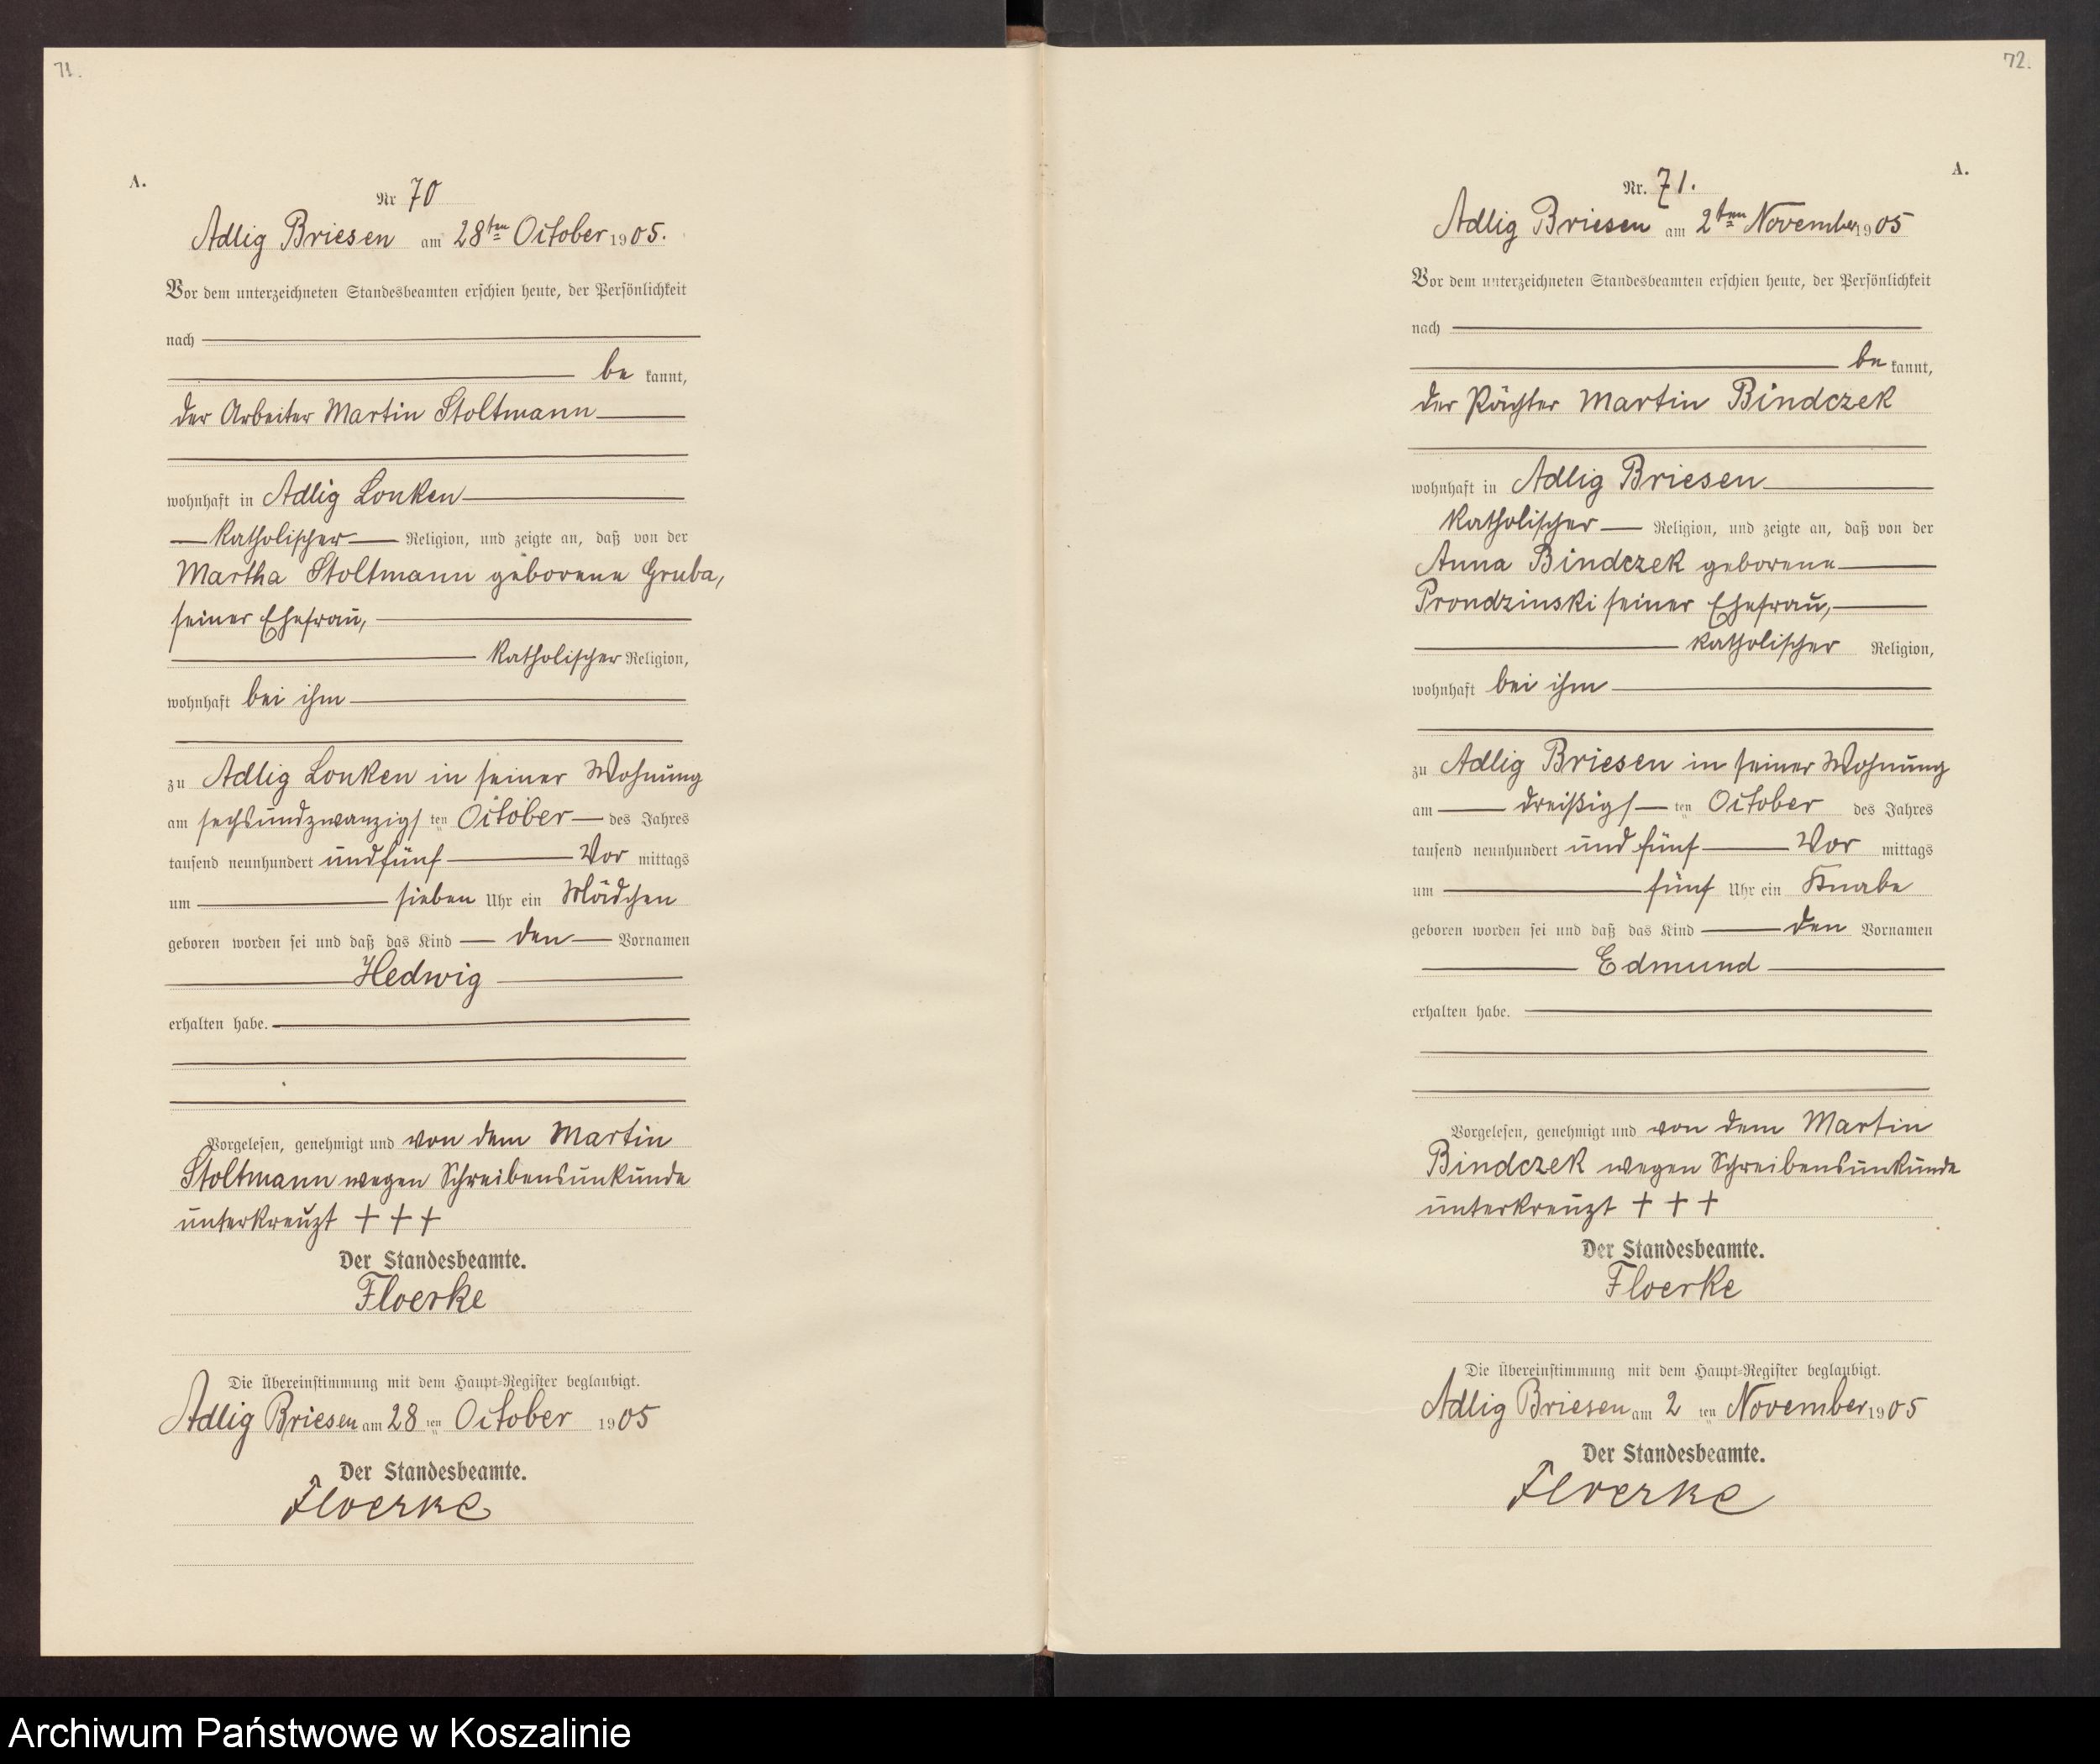 71.
A.
Nr 70
Adlig Briesen am 28ten October 1905.
Vor dem unterzeichneten Standesbeamten erschien heute, der Persönlichkeit
nach
be kannt,
der Arbeiter Martin Stoltmann
wohnhaft in Adlig Lonken
katholischer Religion, und zeigte an, daß von der
Martha Stoltmann geborene Gruba,
seiner Ehefrau,
katholischer Religion,
wohnhaft bei ihm
zu Adlig Lonken in seiner Wohnung
am sechsundzwanzigsten October des Jahres
tausend neunhundert undfünf Vor mittags
um sieben Uhr ein Mädchen
geboren worden sei und daß das Kind den Vornamen
Hedwig
erhalten habe.
Vorgelesen, genehmigt und von dem Martin
Stoltmann wegen Schreibensunkunde
unterkreuzt + + +
Der Standesbeamte.
Floerke
Die Übereinstimmung mit dem Haupt-Register beglaubigt.
Adlig Briesen am 28 ten October 1905
Der Standesbeamte.
Floerke
72.
A.
Nr. 71.
Adlig Briesen am 2ten November 1905
Vor dem unterzeichneten Standesbeamten erschien heute, der Persönlichkeit
nach
be kannt,
der Pächter Martin Bindczek
wohnhaft in Adlig Briesen
katholischer Religion, und zeigte an, daß von der
Anna Bindczek geborene
Prondzinski seiner Ehefrau,
katholischer Religion,
wohnhaft bei ihm
zu Adlig Briesen in seiner Wohnung
am dreißigs ten October des Jahres
tausend neunhundert und fünf Vor mittags
um fünf Uhr ein Knabe
geboren worden sei und daß das Kind den Vornamen
Edmund
erhalten habe.
Vorgelesen, genehmigt und von dem Martin
Bindczek wegen Schreibensunkunde
unterkreuzt + + +
Der Standesbeamte.
Floerke
Die Übereinstimmung mit dem Haupt-Register beglaubigt.
Adlig Briesen am 2 ten November 1905
Der Standesbeamte.
Floerke
Archiwum Państwowe w Koszalinie